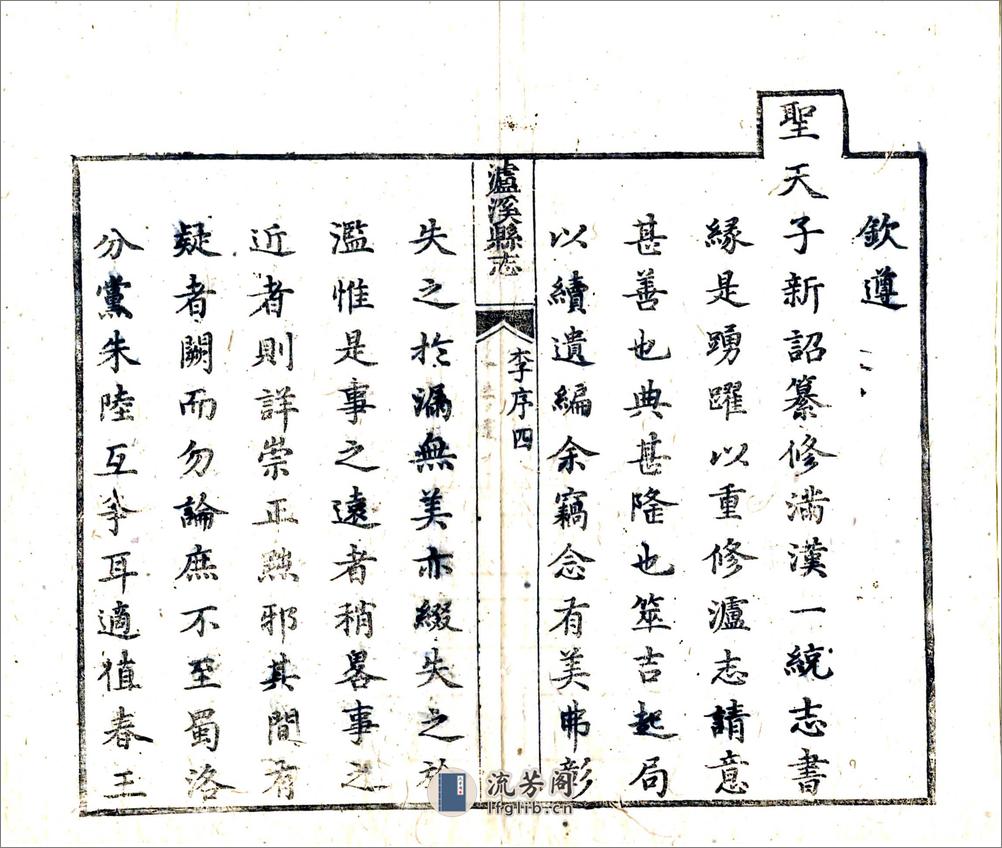 欽遵
聖天子新詔纂修滿漢一統志書
緣是踴躍以重修瀘志請意
甚善也典甚隆也筮吉起局
以續遺編余竊念有美弗彰
瀘溪縣志
李序四
失之於漏無美亦綴失之於
濫惟是事之遠者稍畧事之
近者則詳崇正黜邪其間有
疑者闕而勿論庶不至蜀洛
分黨朱陸互爭耳適值春王
流芳閣
lfglib.cn